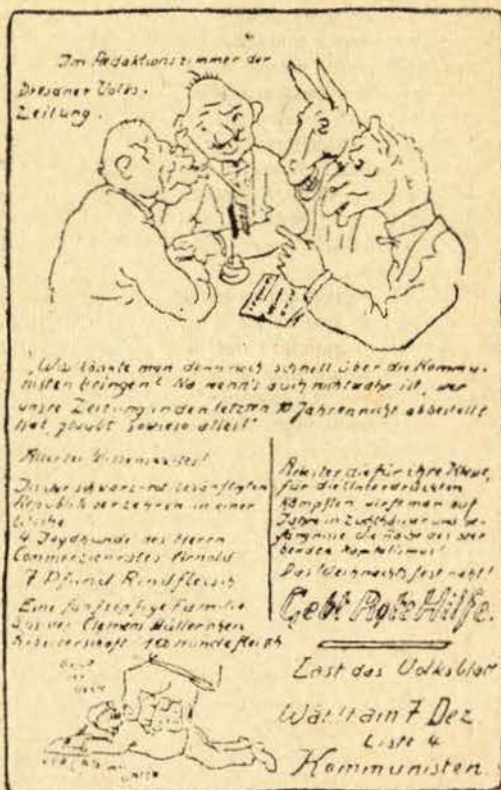 Im Redaktionszimmer der
Dresdner Volks-
Zeitung.
"Was könnte man denn noch schnell über die Kommu-
nisten bringen? Na wenn's auch nicht wahr ist, wer
unsre Zeitung in den letzten 10 Jahren nicht abbestellt
hat, glaubt sowieso alles!"
Allerlei Wissenswertes!
In der schwarz-rot
Republik verzehren in einer
Woche
4 Jagdhunde des Herrn
Commerzienrates Arnold
7 Pfund Rindfleisch
Eine fünfköpfige Familie
aus der Clemens Müllerschen
Arbeiterschaft 1 Pfd Hundefleisch
Arbeiter die für ihre Klasse,
für die Unterdrückten
kämpften wirft man auf
Jahre in Zuchthäuser und Ge-
fängnisse die Rache des ster-
benden Kapitalismus!
Das Weihnachtsfest naht!
Gebt Rote Hilfe.
Lest das Volksblatt
Wählt am 7 Dez
Liste 4
Kommunisten